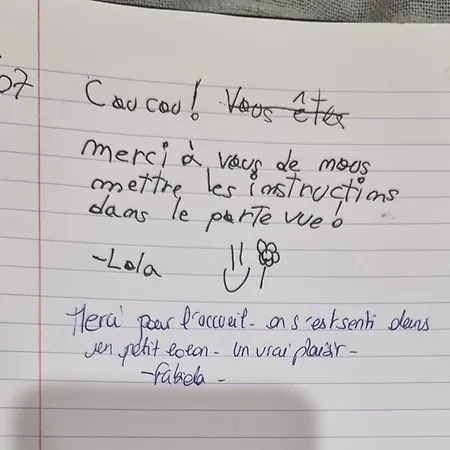 07
Coucou! Vous êtes
merci à vous de nous
mettre les instructions
dans le porte vue!
-Lola
Merci pour l'accueil - on s'est senti dans
un petit cocon - Un vrai plaisir -